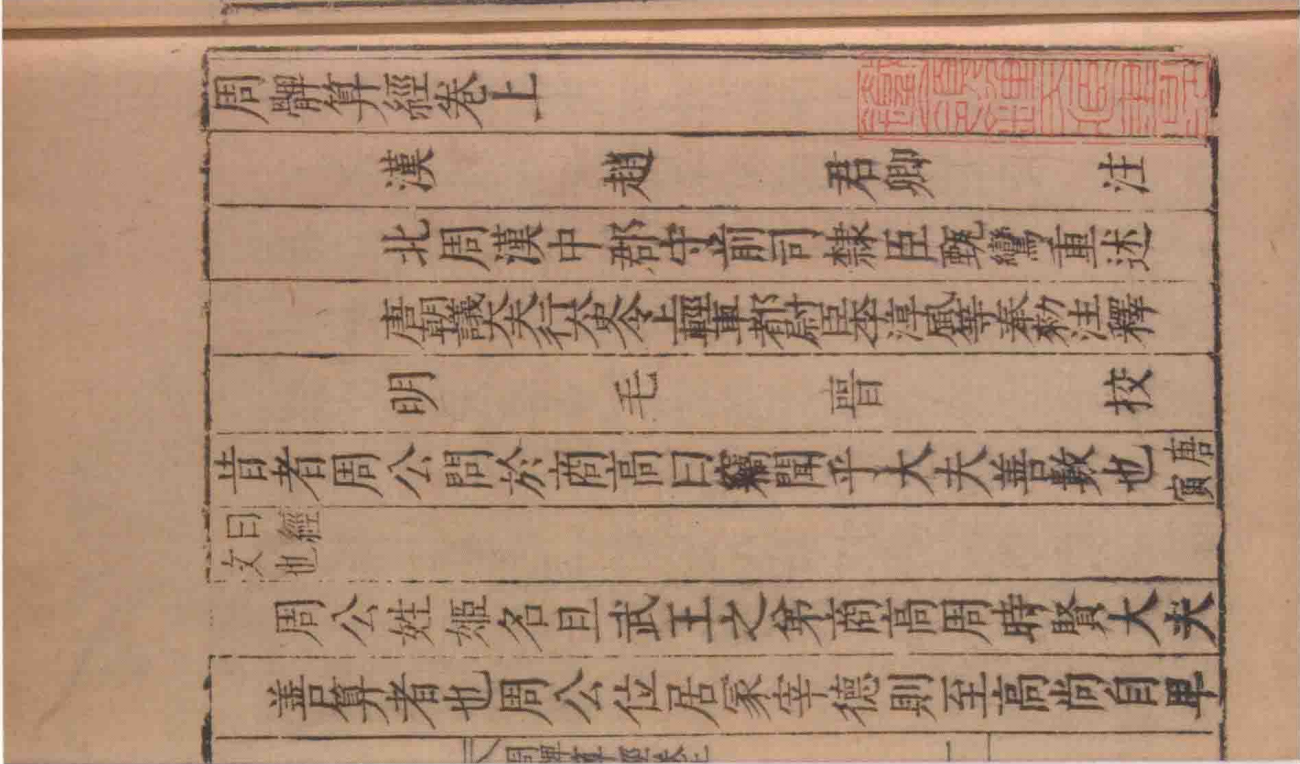 周髀算經卷上
漢趙君卿注
北周漢中郡守前司隸臣甄鸞重述
唐朝議大夫行太史令上輕車都尉臣李淳風等奉勅注釋
明毛晉挍
昔者周公問於商高曰竊聞乎大夫善數也唐寅
曰經文也
周公姓姬名旦武王之弟商高周時賢大夫
善算者也周公位居冢宰德則至高尚自卑
周髀算經卷上 一